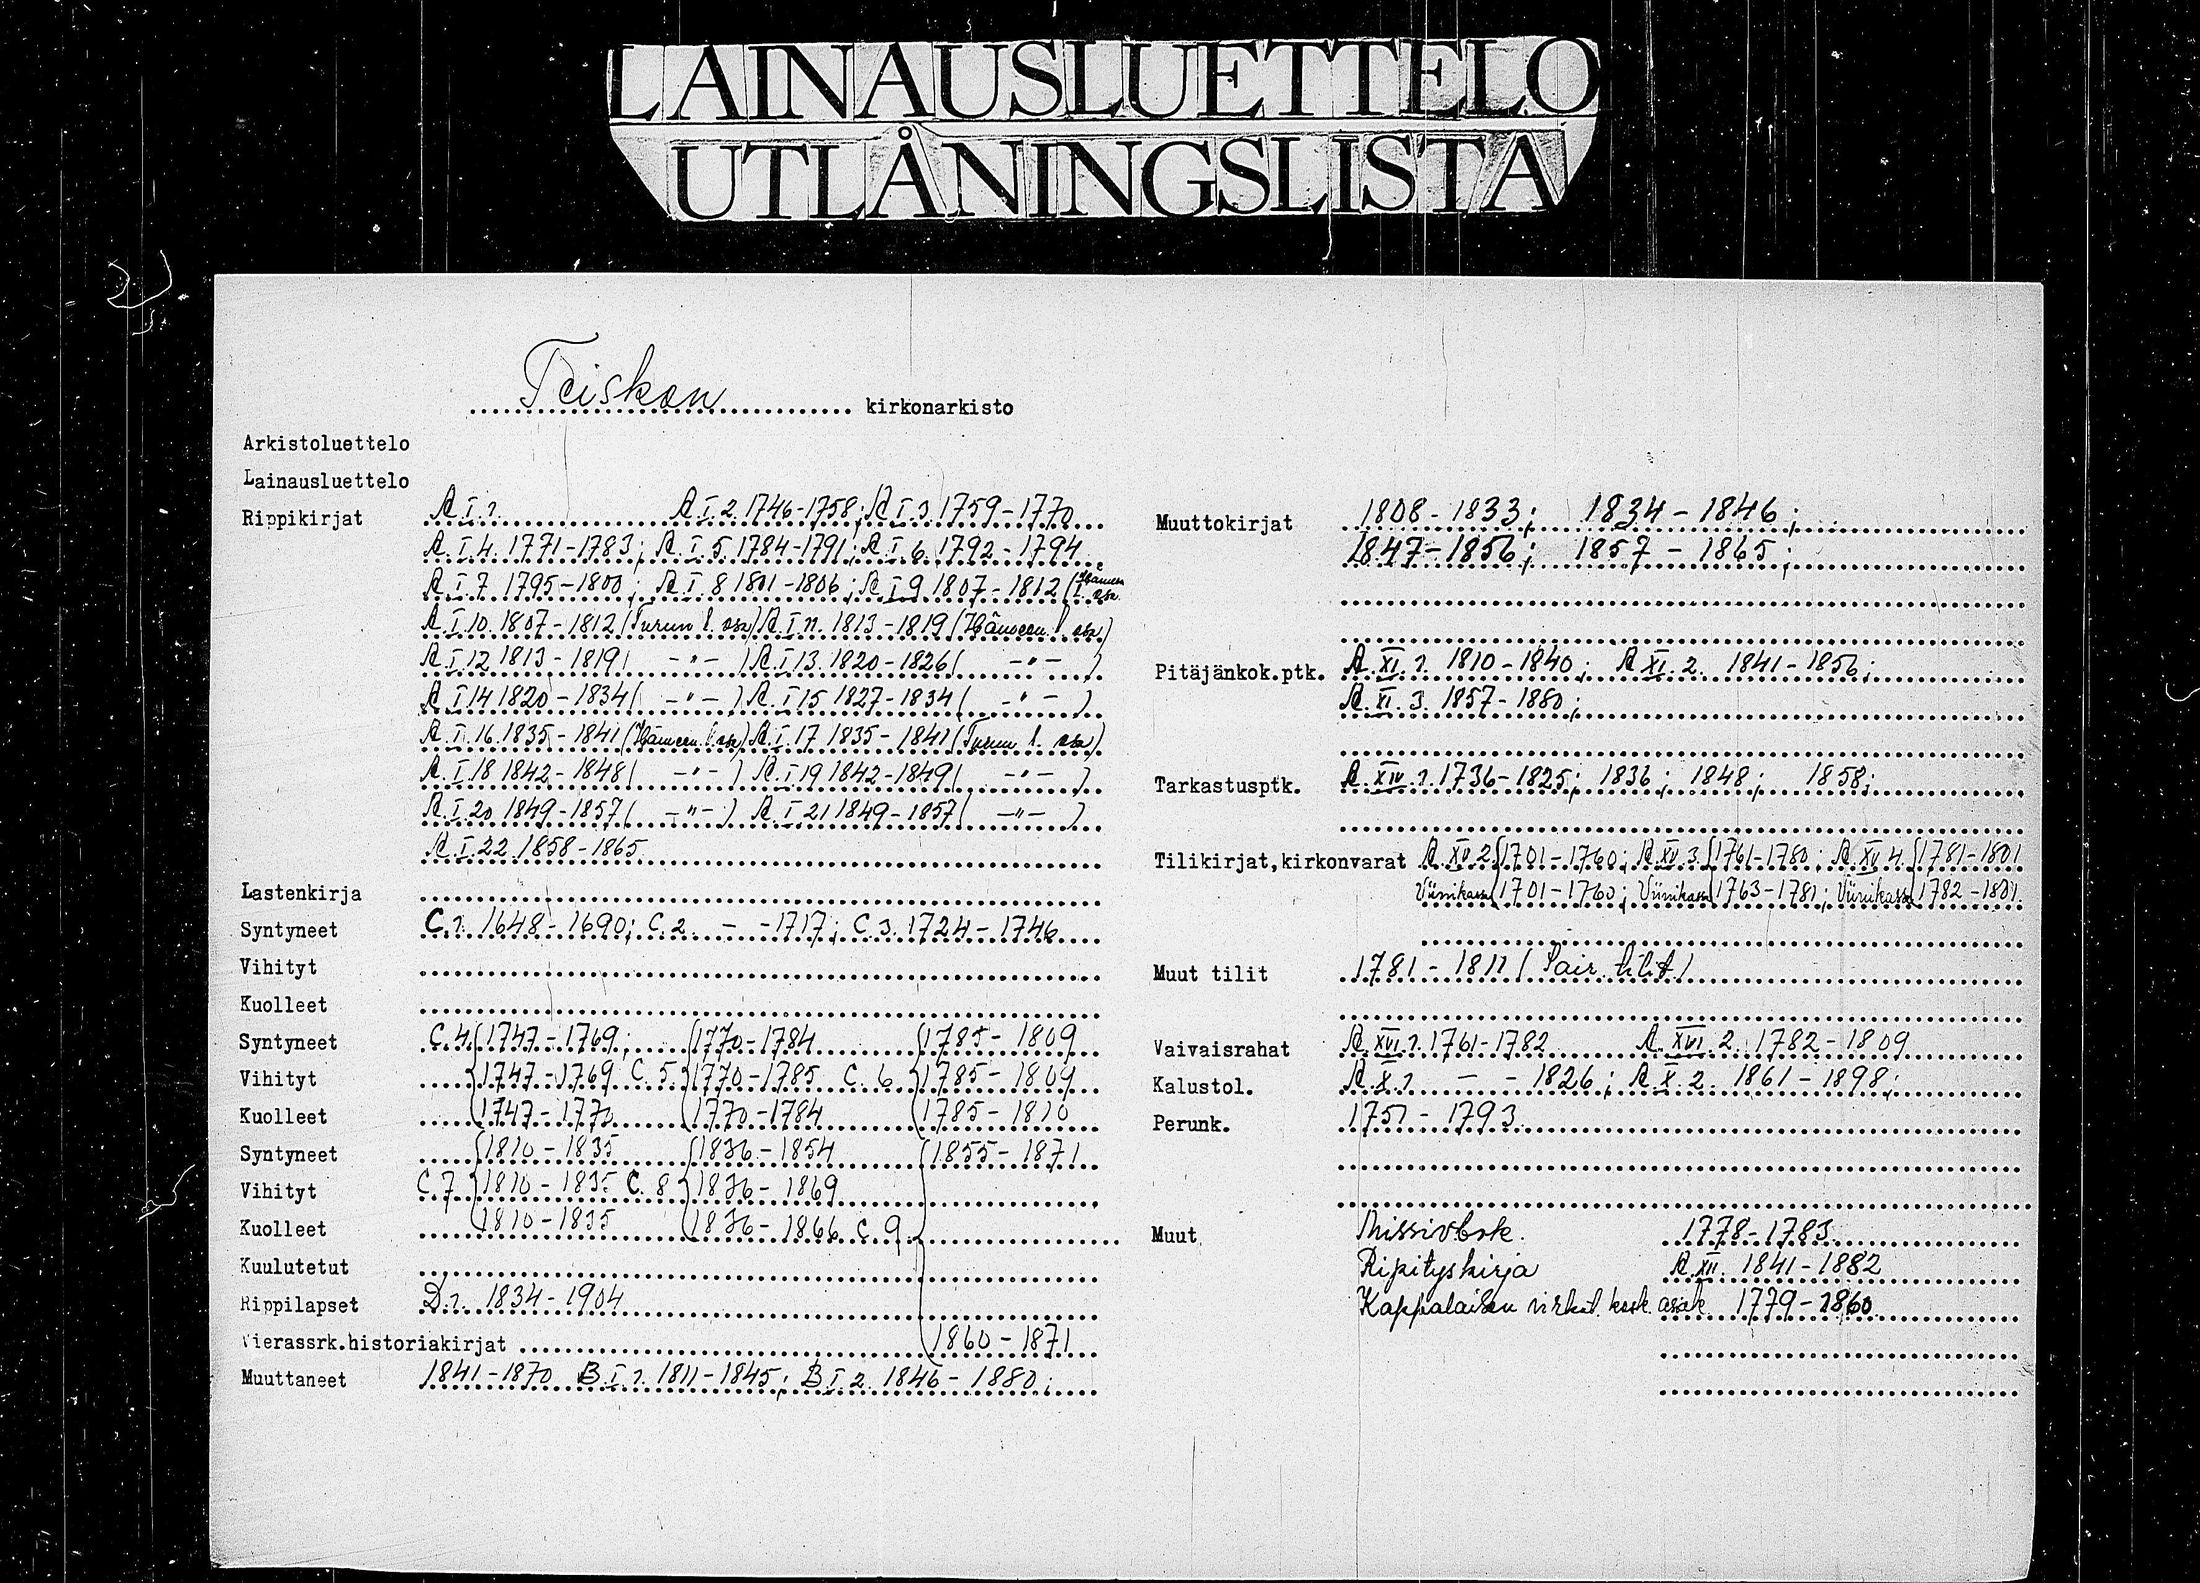 LAINAUSLUETTELO
UTLÅNINGSLISTA
Teiskon kirkonarkisto
Arkistoluettelo
Lainausluettelo
Rippikirjat A.I.1. A.I.2. 1746-1758; A.I.3. 1759-1770
A.I.4. 1771-1783; A.I.5. 1784-1791; A.I.6. 1792-1794
A.I.7 1795-1800; A.I.8 1801-1806; A.I.9 1807-1812 (Hämeen l. osa
A.I.10. 1807-1812 (Turun l. osa) A.I.11. 1813-1819 (Hämeen l. osa)
A.I.12 1813-1819 ( -"- ) A.I.13. 1820-1826 ( -"- )
A.I.14 1820-1834 ( -"- ) A.I.15 1827-1834 ( -"- )
A.I.16. 1835-1841 (Hämeen l. osa) A.I.17 1835-1841 (Turun l. osa)
A.I.18 1842-1848 ( -"- ) A.I.19 1842-1849 ( -"- )
A.I.20 1849-1857 ( -"- ) A.I.21 1849-1857 ( -"- )
A.I.22 1858-1865
Lastenkirja
Syntyneet C.1. 1648-1690; C.2. - -1717; C.3. 1724-1746
Vihityt
Kuolleet
Syntyneet C.4. 1747-1769; 1770-1784 1785-1809
Vihityt 1747-1769 C.5. 1770-1785 C.6. 1785-1809
Kuolleet 1747-1770 1770-1784 1785-1810
Syntyneet 1810-1835 1836-1854 1855-1871
Vihityt C.7 1810-1835 C.8 1836-1869
Kuolleet 1810-1835 1836-1866 C.9
Kuulutetut
Rippilapset D.1. 1834-1904
Vierassrk.historiakirjat 1860-1871
Muuttaneet 1841-1870 B.I.1. 1811-1845; B.I.2. 1846-1880;
Muuttokirjat 1808-1833; 1834-1846;
1847-1856; 1857-1865;
Pitäjänkok.ptk. A.XI.1. 1810-1840; A.XI.2. 1841-1856;
A.XI.3. 1857-1880;
Tarkastusptk. A.XIV.1. 1736-1825; 1836; 1848; 1858;
Tilikirjat,kirkonvarat A.XV.2. 1701-1760; A.XV.3. 1761-1780; A.XV.4. 1781-1801
Viinikassa 1701-1760; Viinikassa 1763-1781; Viinikassa 1782-1801.
Muut tilit 1781-1811 (Sair. tilit)
Vaivaisrahat A.XVI.1. 1761-1782 A.XVI.2. 1782-1809
Kalustol. A.X.1 - - 1826; A.X.2. 1861-1898;
Perunk. 1751-1793
Muut Missivbok. 1778-1783
Ripityskirja A.XII. 1841-1882
Kappalaisen virkat. kosk. asiak. 1779-1860